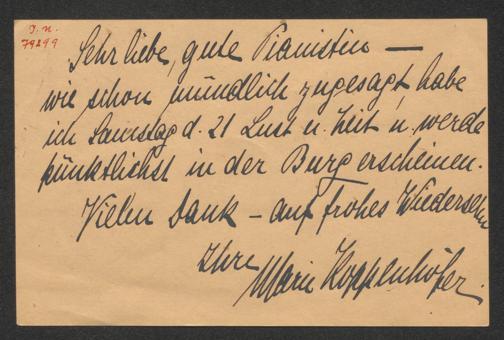 I. N.
79299
Sehr liebe, gute Pianistin —
wie schon mündlich zugesagt, habe
ich Samstag d. 21 Lust u. Zeit u. werde
pünktlichst in der Burg erscheinen.
Vielen Dank – auf frohes Wiedersehn
Ihre
Marie Koppenhöfer.